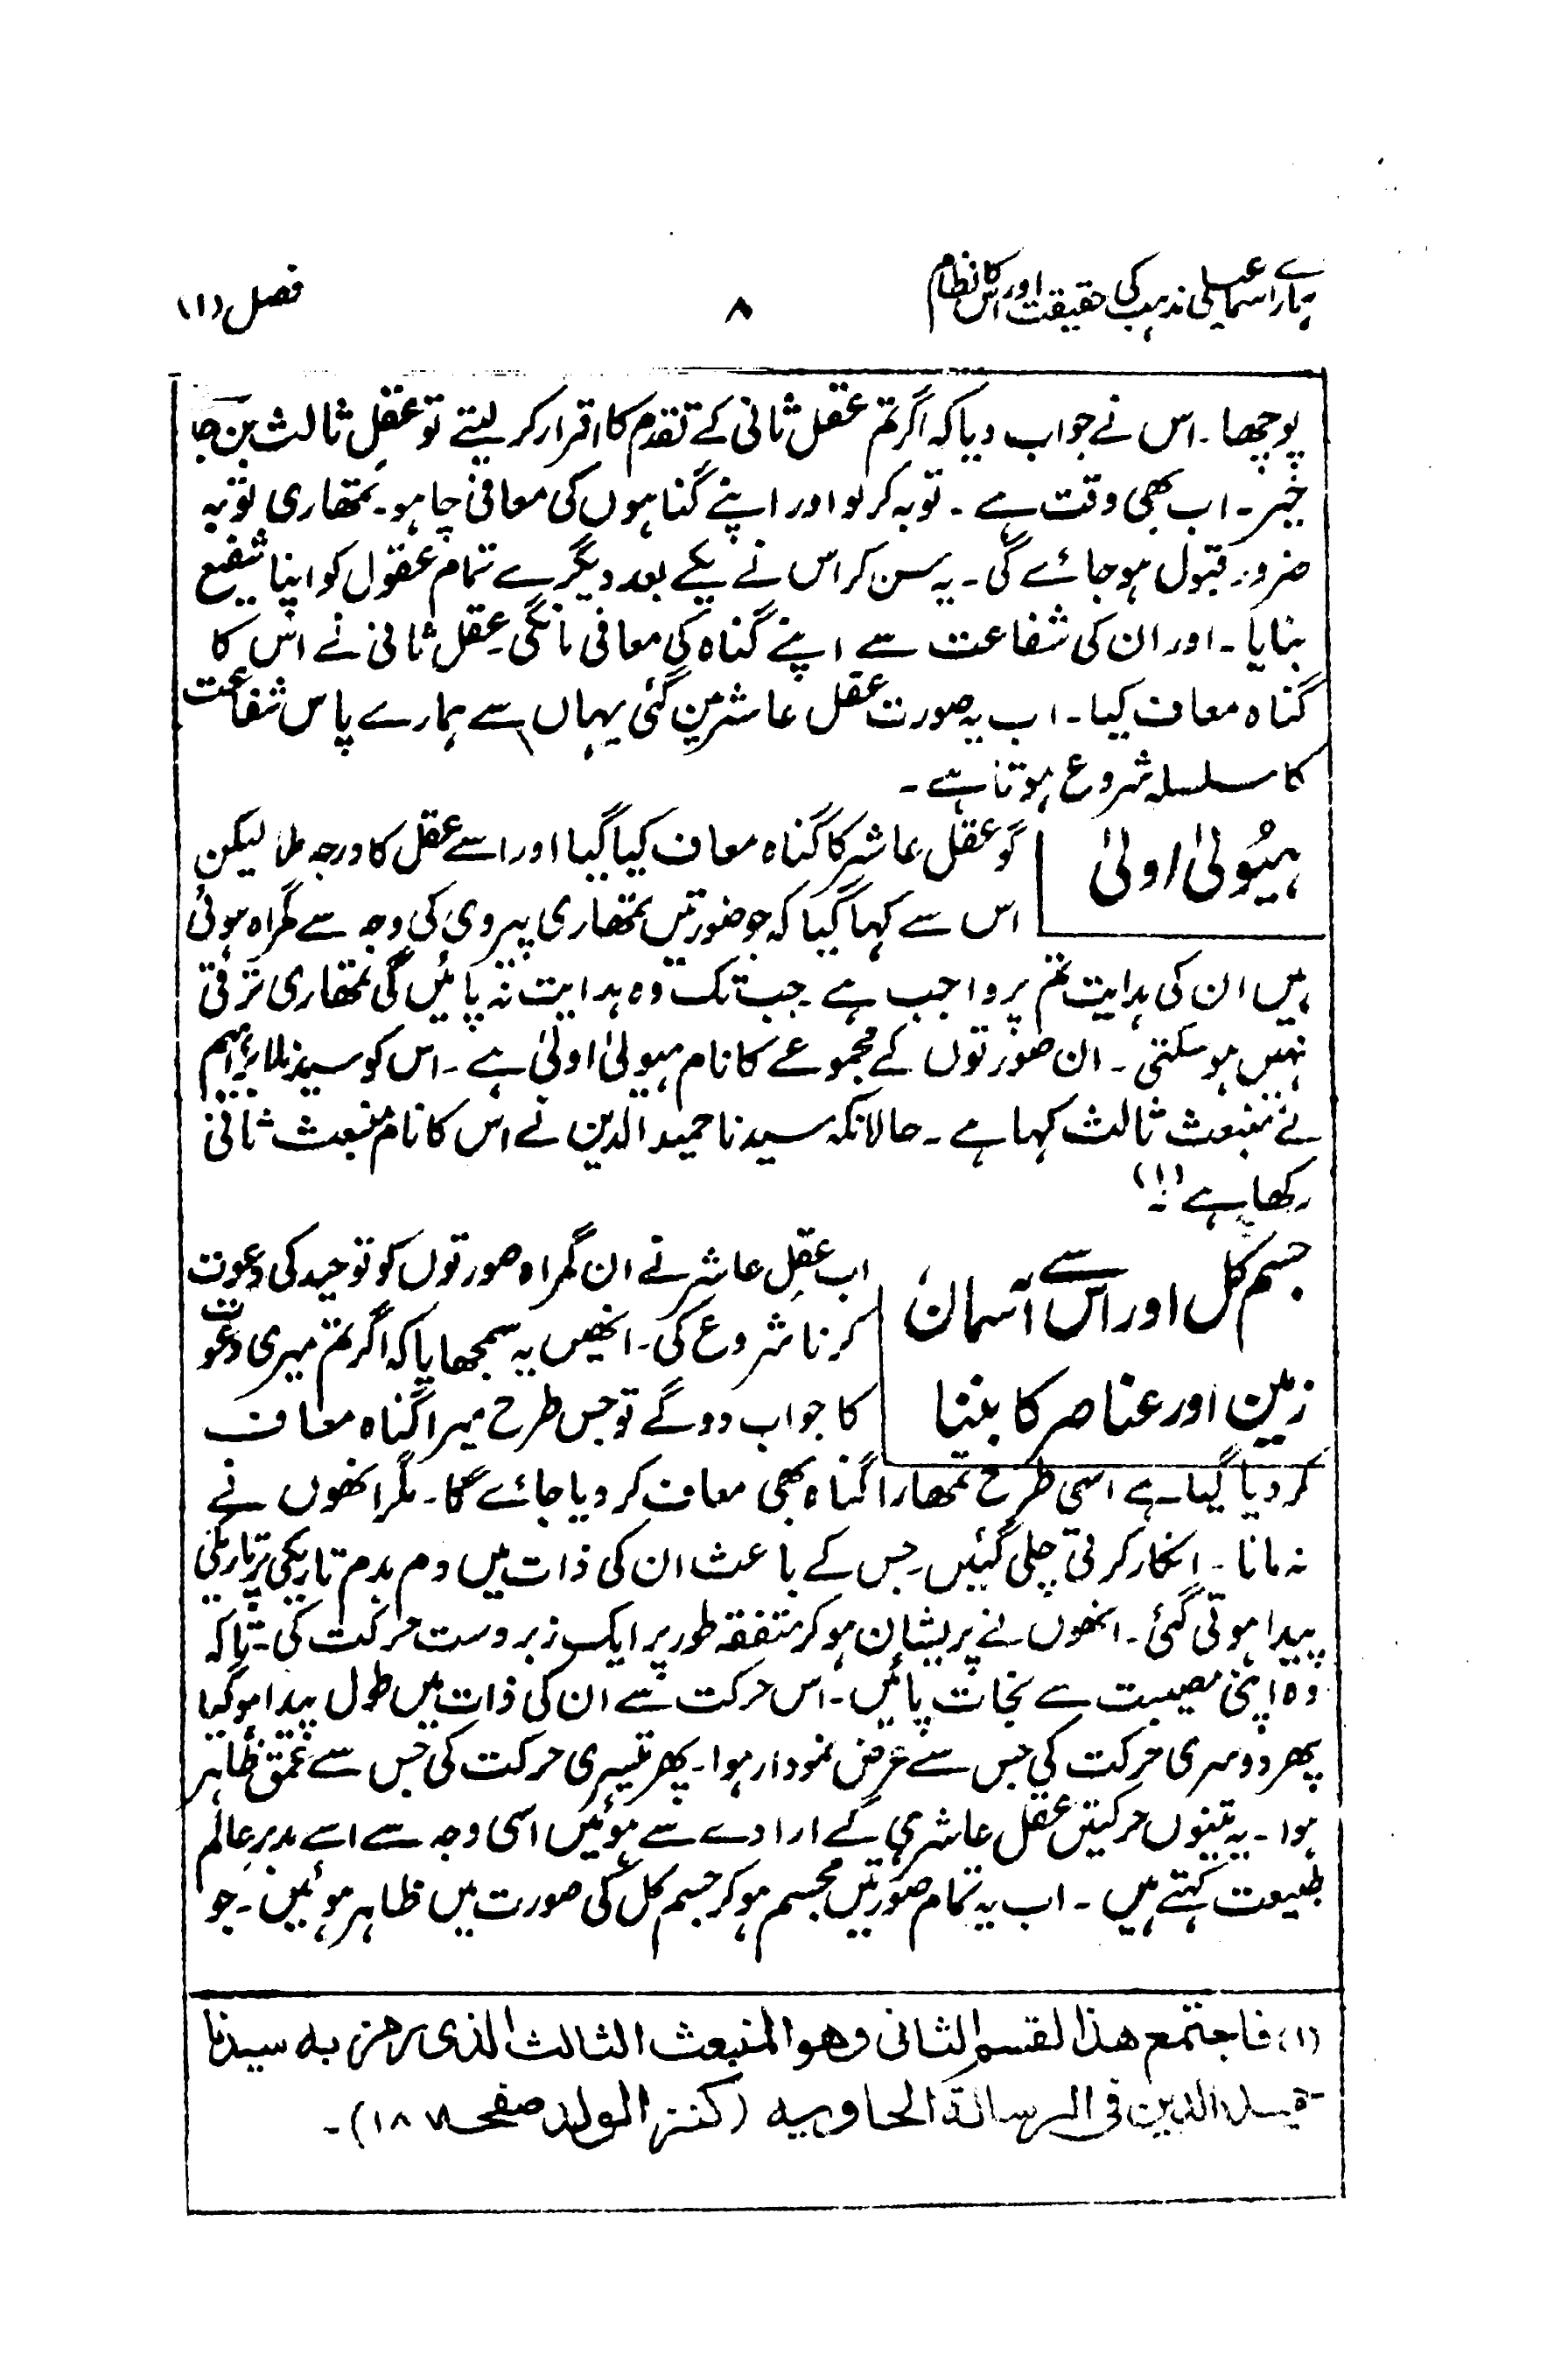 ہمارے اسماعیلی مذہب کی حقیقت اور اس کا نظام
۸
فصل (۱)
پوچھا۔ اس نے جواب دیا کہ اگر تم عقل ثانی کے تقدم کا اقرار کر لیتے تو عقلِ ثالث بن جا
خیر۔ اب بھی وقت ہے۔ توبہ کر لو اور اپنے گناہوں کی معافی چاہو۔ تمھاری توبہ
ضرور قبول ہو جائے گی۔ یہ سن کر اس نے یکے بعد دیگرے تمام عقول کو اپنا شفیع
بنایا۔ اور ان کی شفاعت سے اپنے گناہ کی معافی مانگی۔ عقل ثانی نے اس کا
گناہ معاف کیا۔ اب یہ صورت عقل عاشر بن گئی یہاں سے ہمارے پاس شفاعت
کا سلسلہ شروع ہوتا ہے۔
ہیُولیٰ اولیٰ
گو عقل عاشر کا گناہ معاف کیا گیا اور اسے عقل کا درجہ ملا لیکن
اس سے کہا گیا کہ جو صورتیں تمھاری پیروی کی وجہ سے گمراہ ہوئی
ہیں ان کی ہدایت تم پر واجب ہے۔ جب تک وہ ہدایت نہ پائیں گی تمھاری ترقی
نہیں ہو سکتی۔ ان صورتوں کے مجموعے کا نام ہیولیٰ اولیٰ ہے۔ اس کو سیدنا ابراہیم
نے منبعث ثالث کہا ہے۔ حالانکہ سیدنا حمید الدین نے اس کا نام منبعث ثانی
رکھا ہے (۱)۔
جسم کل اور اس سے آسمان،
زمین اور عناصر کا بننا
اب عقلِ عاشر نے ان گمراہ صورتوں کو توحید کی دعوت
کرنا شروع کی۔ انھیں یہ سمجھایا کہ اگر تم میری دعوت
کا جواب دو گے تو جس طرح میرا گناہ معاف
کر دیا گیا ہے اسی طرح تمھارا گناہ بھی معاف کر دیا جائے گا۔ مگر انھوں نے
نہ مانا۔ انکار کرتی چلی گئیں۔ جس کے باعث ان کی ذات میں دم بدم تاریکی پر تاریکی
پیدا ہوتی گئی۔ انھوں نے پریشان ہو کر متفقہ طور پر ایک زبردست حرکت کی۔ تاکہ
وہ اپنی مصیبت سے نجات پائیں۔ اس حرکت سے ان کی ذات میں طول پیدا ہو گیا
پھر دوسری حرکت کی جس سے عرض نمودار ہوا۔ پھر تیسری حرکت کی جس سے عمق ظاہر
ہوا۔ یہ تینوں حرکتیں عقل عاشر ہی کے ارادے سے ہوئیں اسی وجہ سے اسے مدبرِ عالم
طبیعت کہتے ہیں۔ اب یہ تمام صورتیں مجسم ہو کر جسم کل کی صورت میں ظاہر ہوئیں۔ جو
(۱) فاجتمع هذا القسم الثانی وهو المنبعث الثالث الذی رمز به سیدنا
حمید الدین فی الرسالة الحاویه (کنز الولد صفحہ ۱۸۷)۔